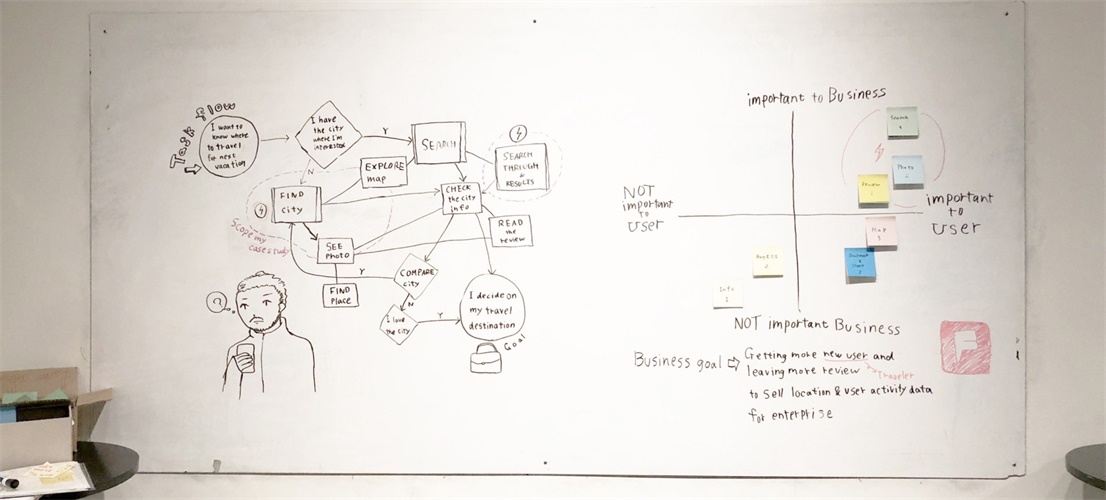 Task Flow
I want to
know where
to travel
for next
vacation
I have
the city
where I'm
interested
Y
SEARCH
N
EXPLORE
map
SEARCH
THROUGH
RESULTS
FIND
City
CHECK
the city
info
READ
the
review
Scope my
case study
SEE
PHOTO
Y
COMPARE
city
FIND
PLACE
N
I love
the city
Y
I decide on
my travel
destination
Goal
?
important to Business
Search
4
Photo
Review
NOT
important
to
User
important
to
USER
Map
3
Info
NOT important Business
Business goal ⇨ Getting more new user and
leaving more review
Traveler
to sell location & user activity data
for enterprise
F